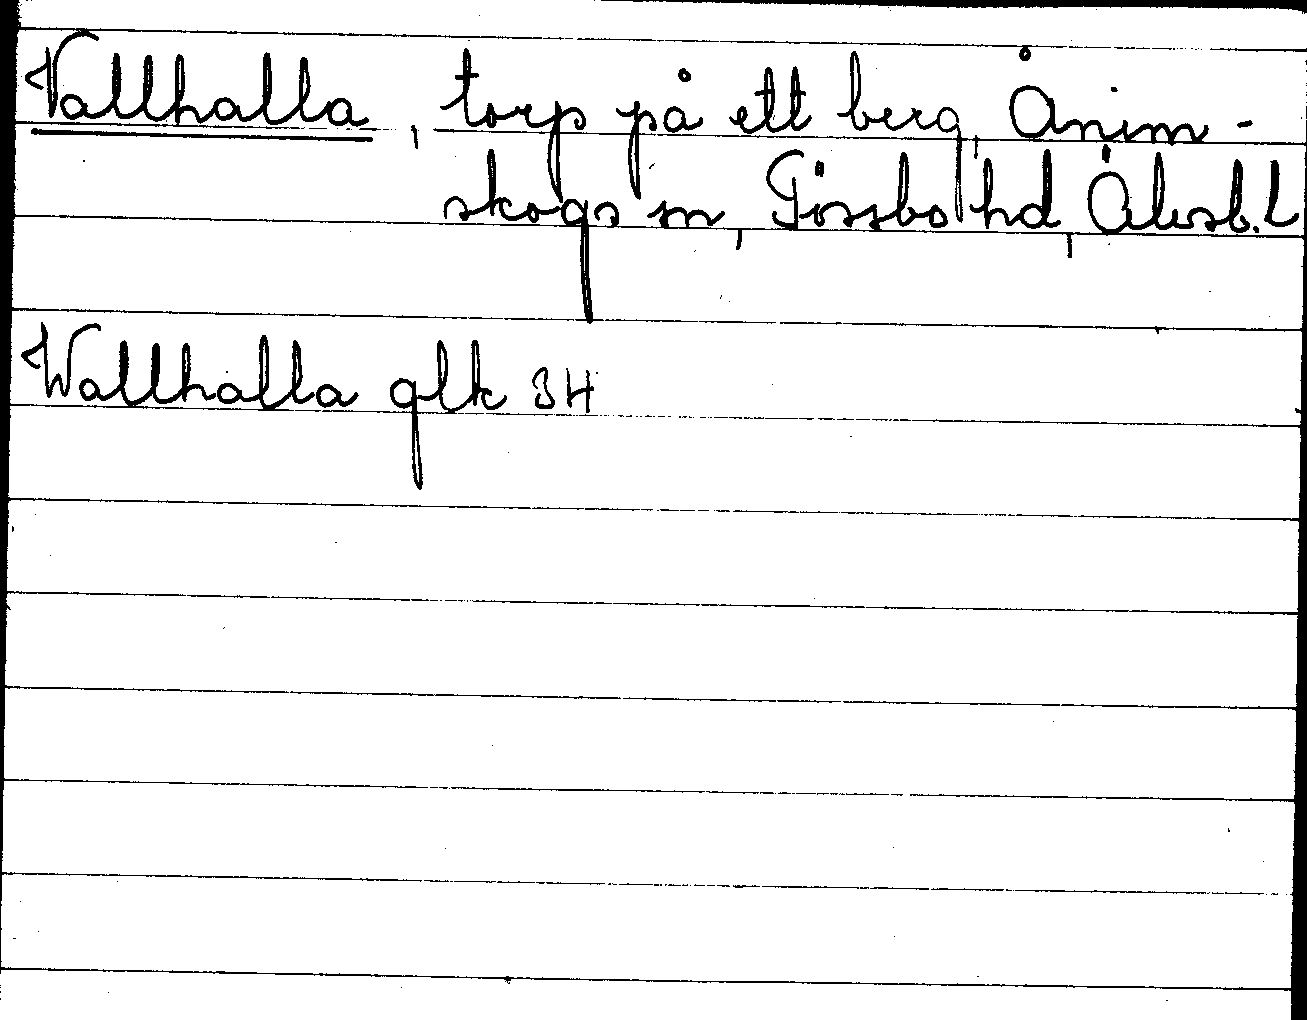 Vallhalla, torp på ett berg, Ånim-
skogs sn, Tössbo hd, Älvsb. L
Wallhalla glk 34